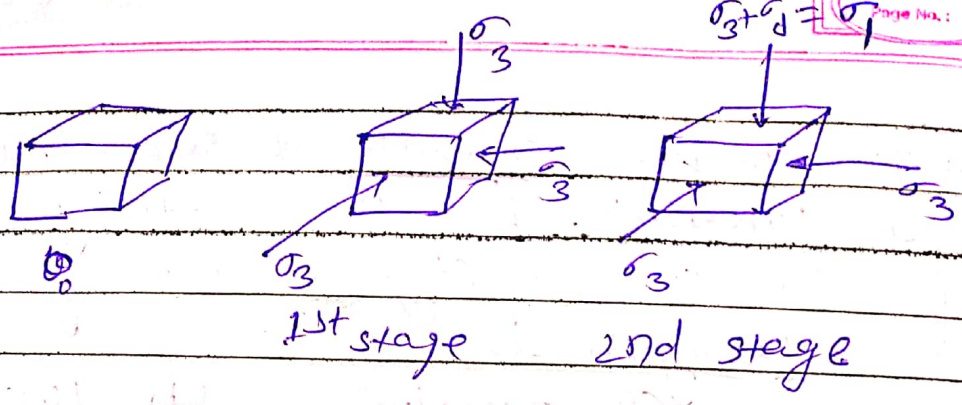 σ3+σd = σ1
Page No.:
σ3
σ3
σ3
σ3
σ3
1st stage
2nd stage